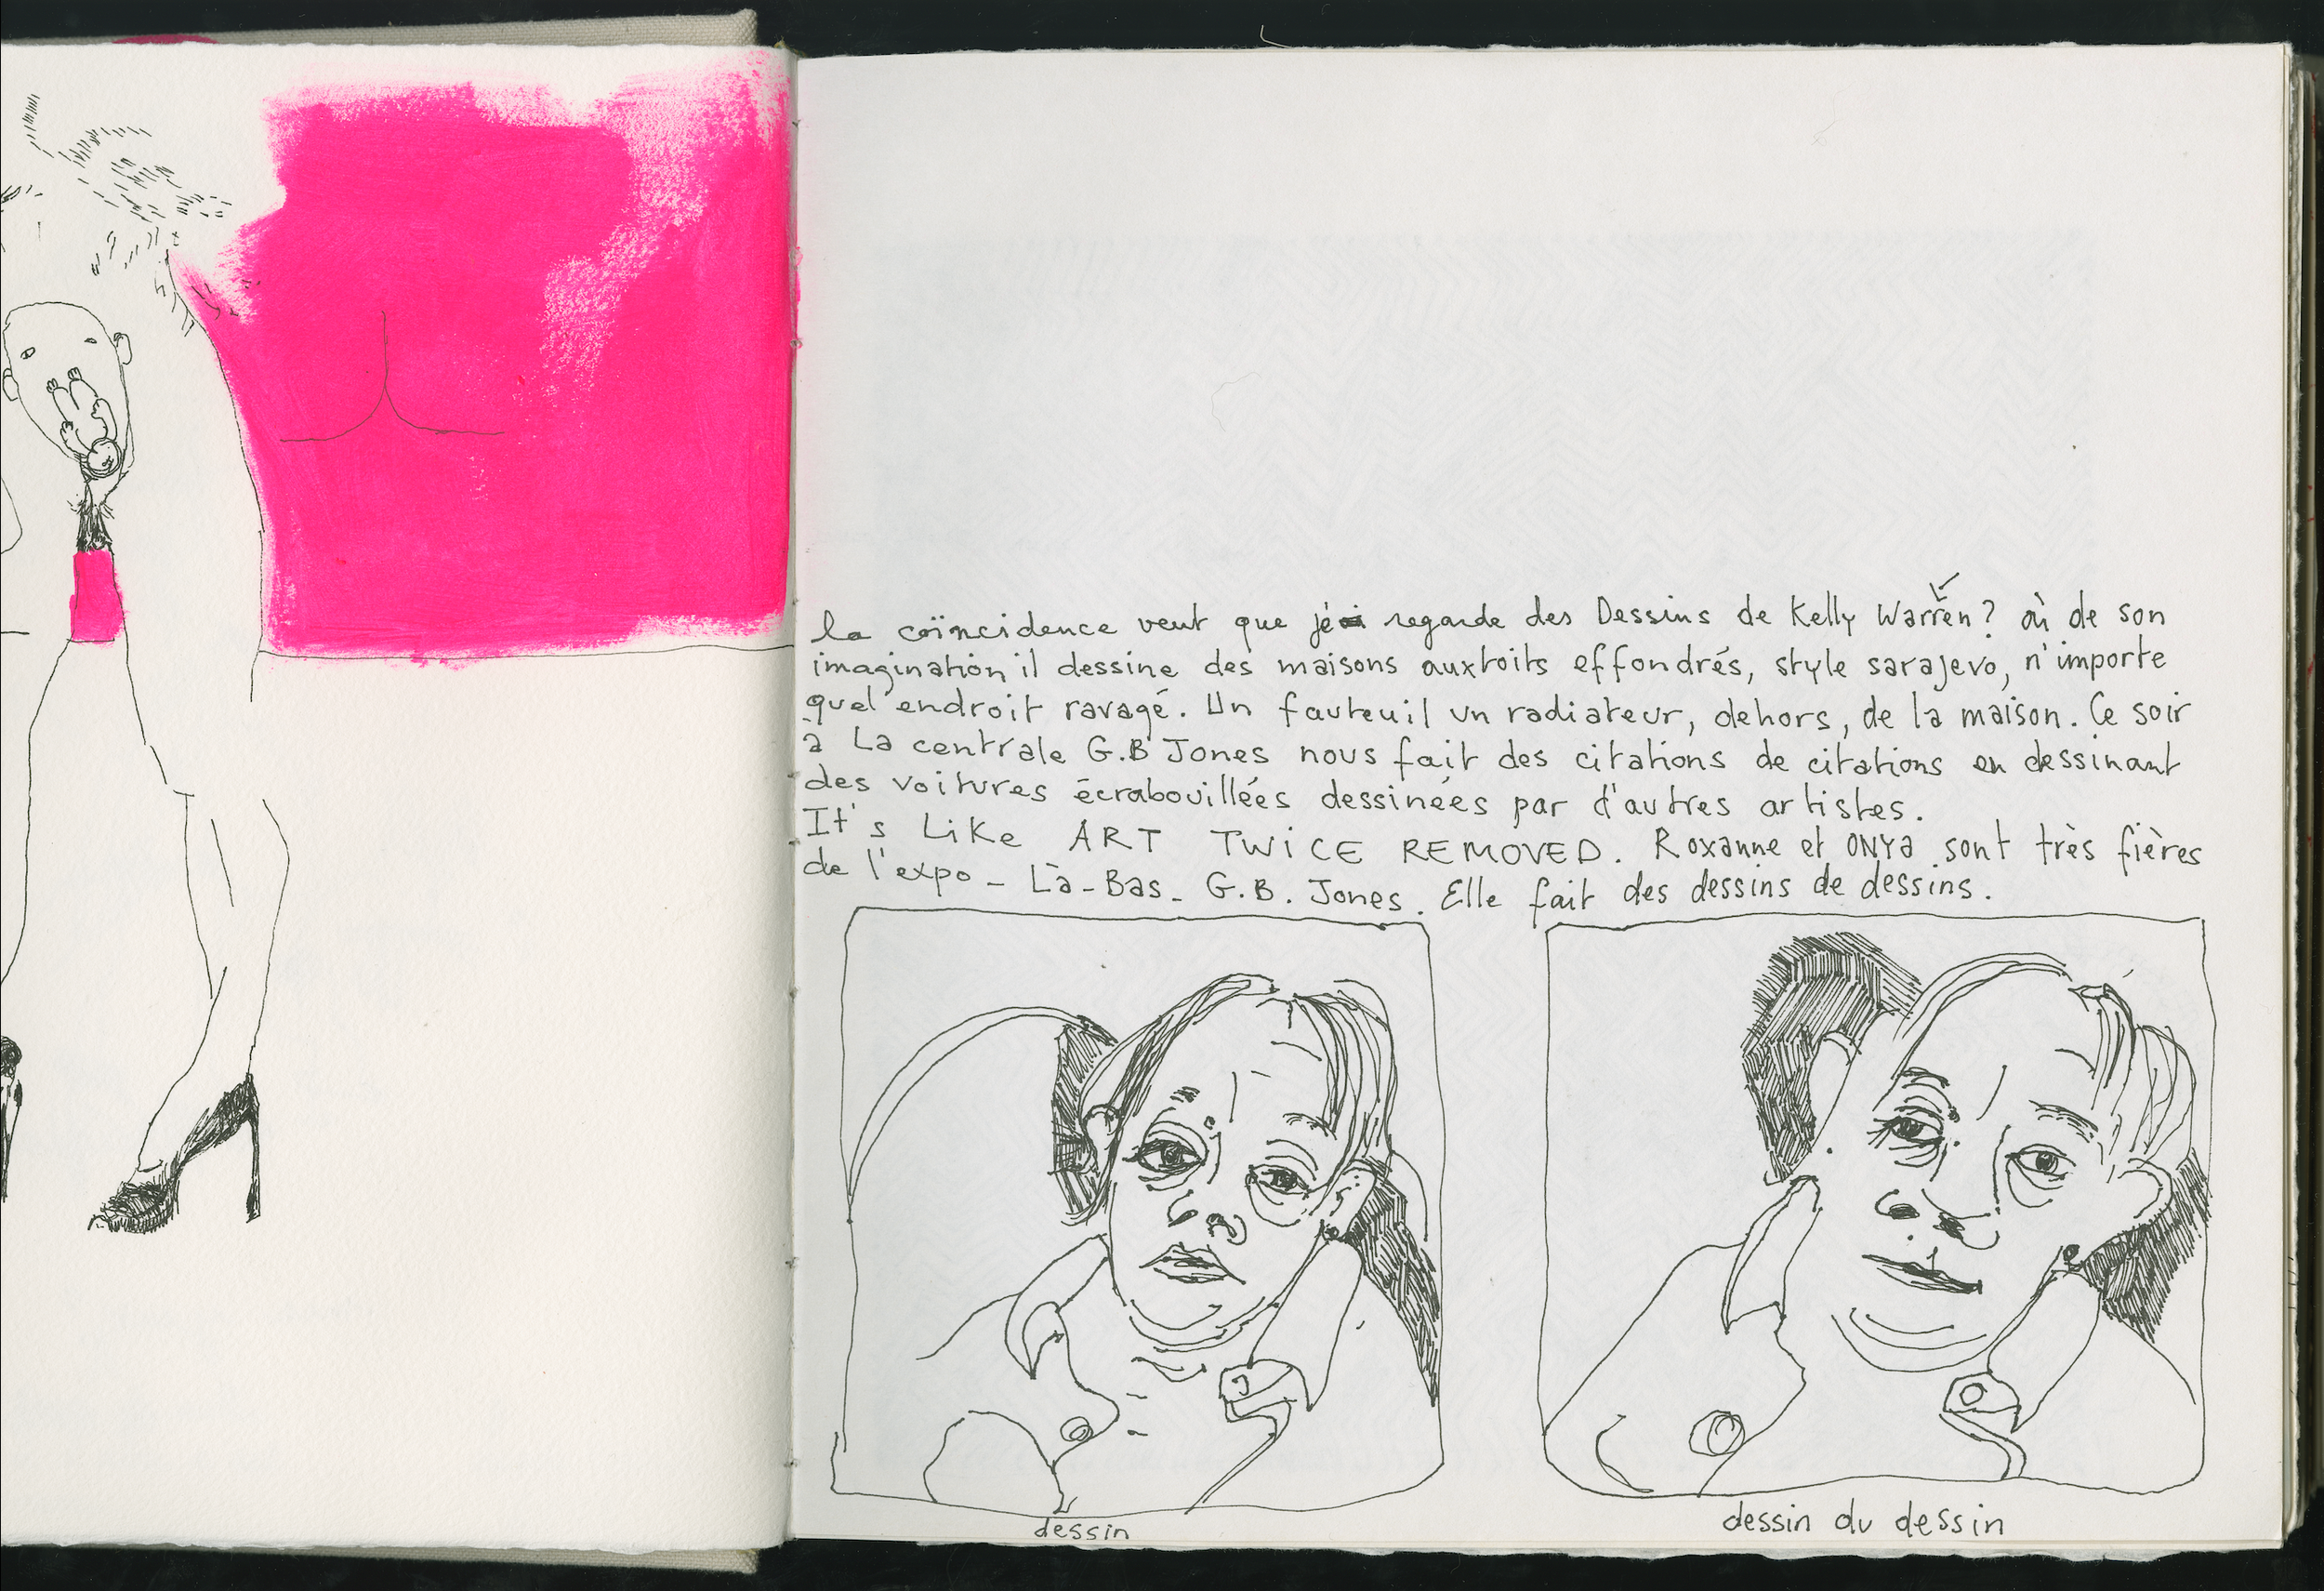 la coïncidence veut que je regarde des Dessins de Kelly Warren? où de son
imagination il dessine des maisons aux toits effondrés, style sarajevo, n'importe
quel endroit ravagé. Un fauteuil un radiateur, dehors, de la maison. Ce soir
à La centrale G.B Jones nous fait des citations de citations en dessinant
des voitures écrabouillées dessinées par d'autres artistes.
It's Like ART TWiCE REMOVED. Roxanne et ONYa sont très fières
de l'expo - Là-Bas - G.B. Jones. Elle fait des dessins de dessins.
dessin
dessin du dessin